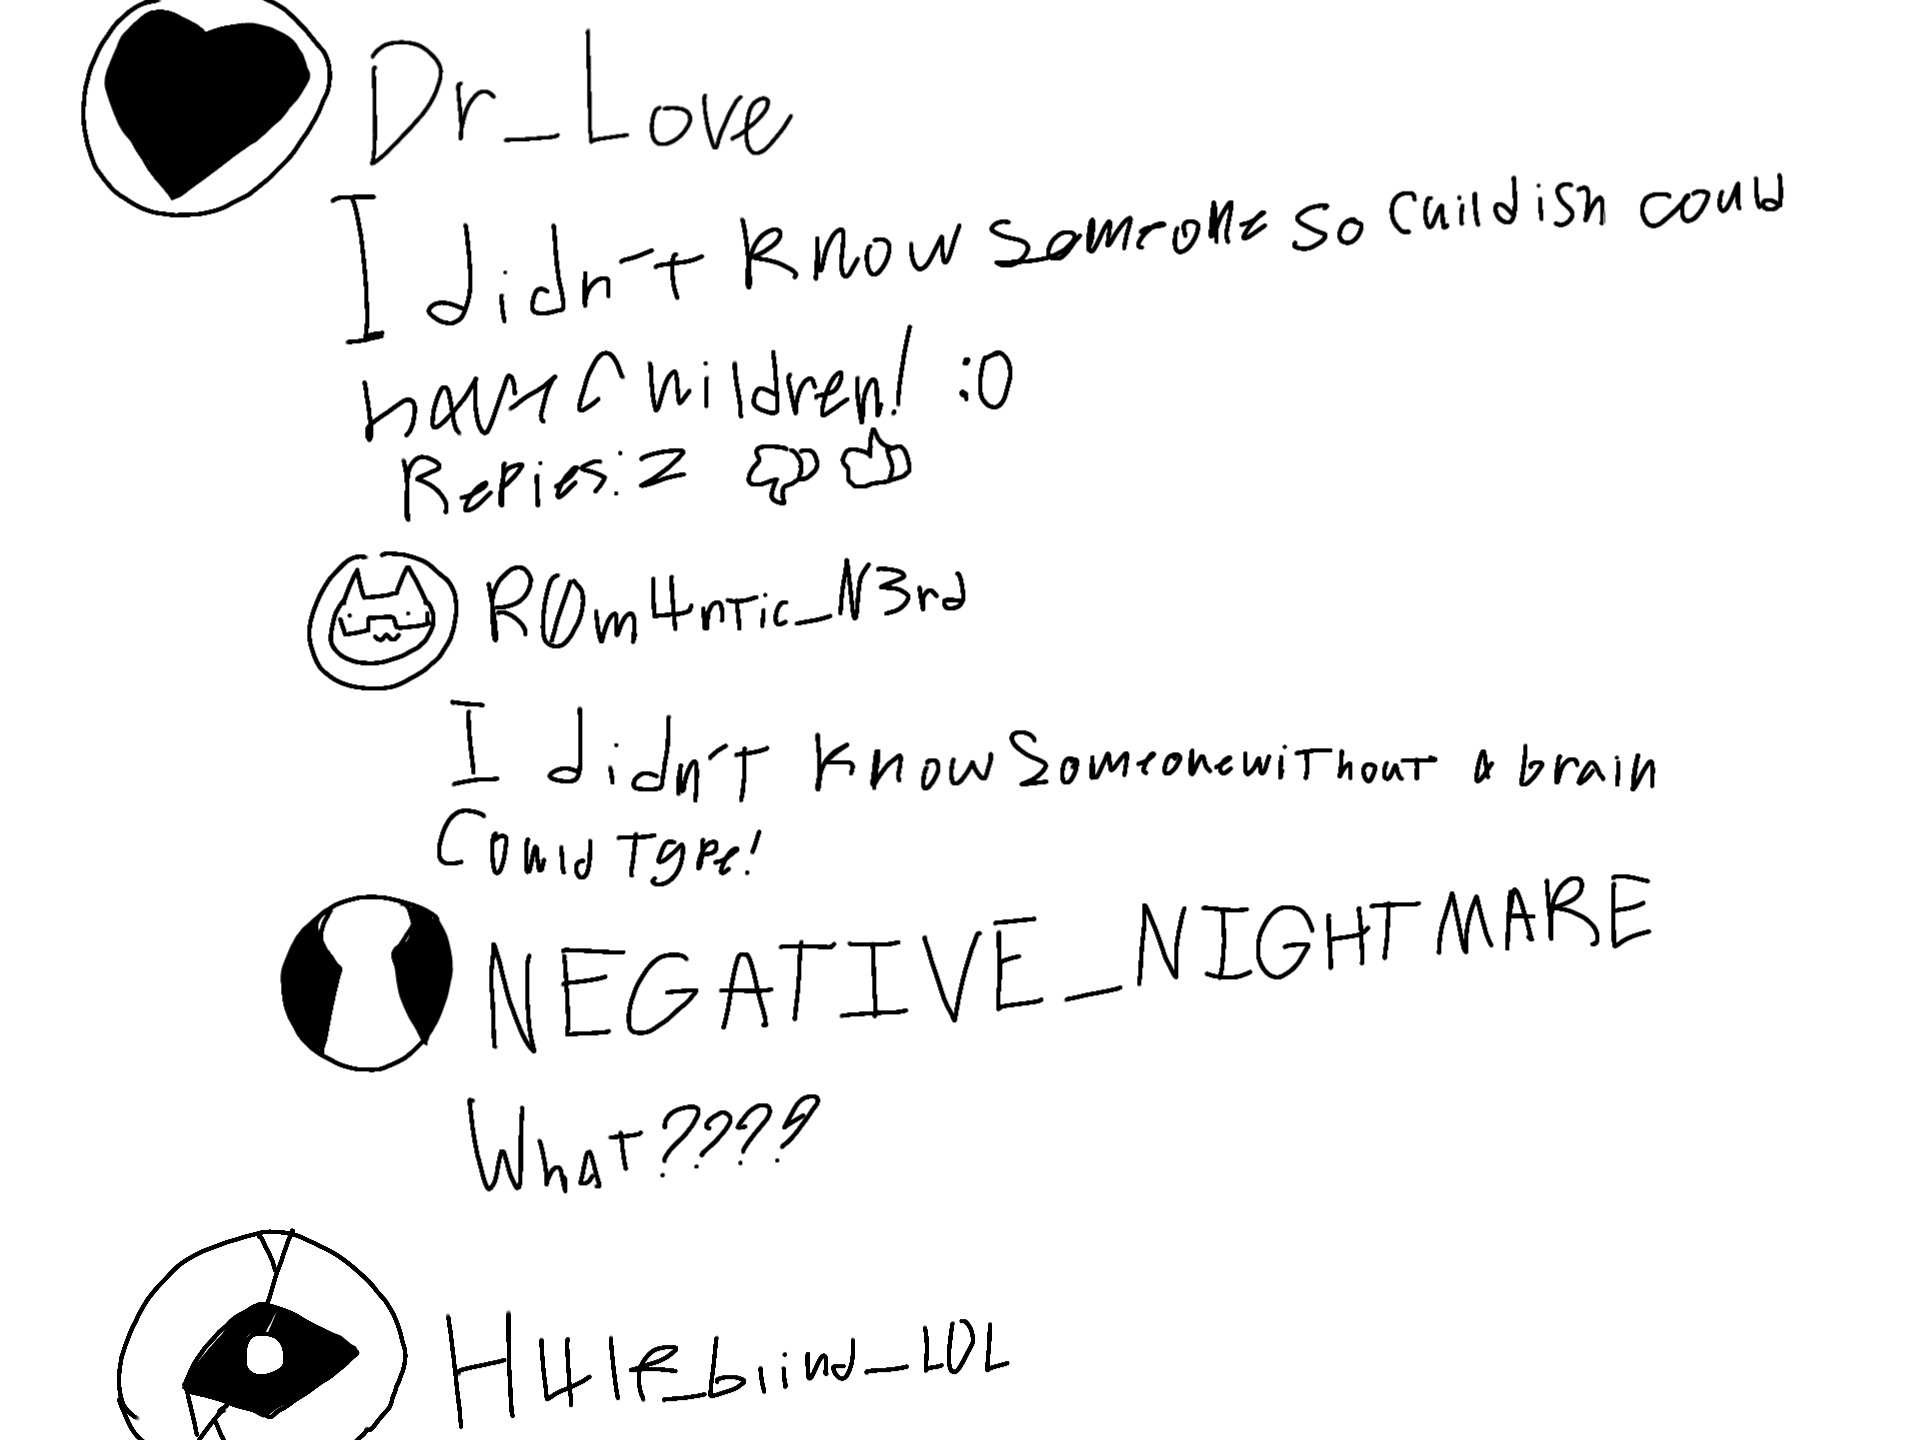 Dr_Love
I didn't know someone so childish could
have children! :O
Repies: 2
R0m4ntic_N3rd
I didn't know someone without a brain
Could type!
NEGATIVE_NIGHTMARE
What????
H4lf_blind_LOL